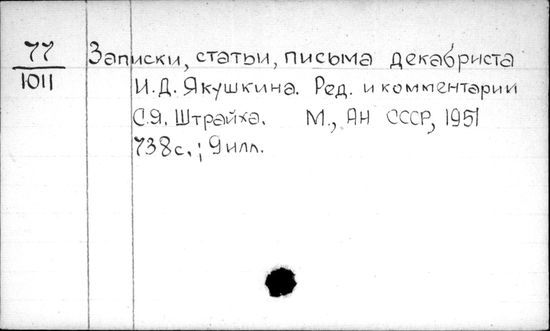 77
1011
Записки, статьи, письма декабриста
И.Д. Якушкина. Ред. и комментарии
С.Я. Штрайха. М., АН СССР, 1951
738с.; 9илл.